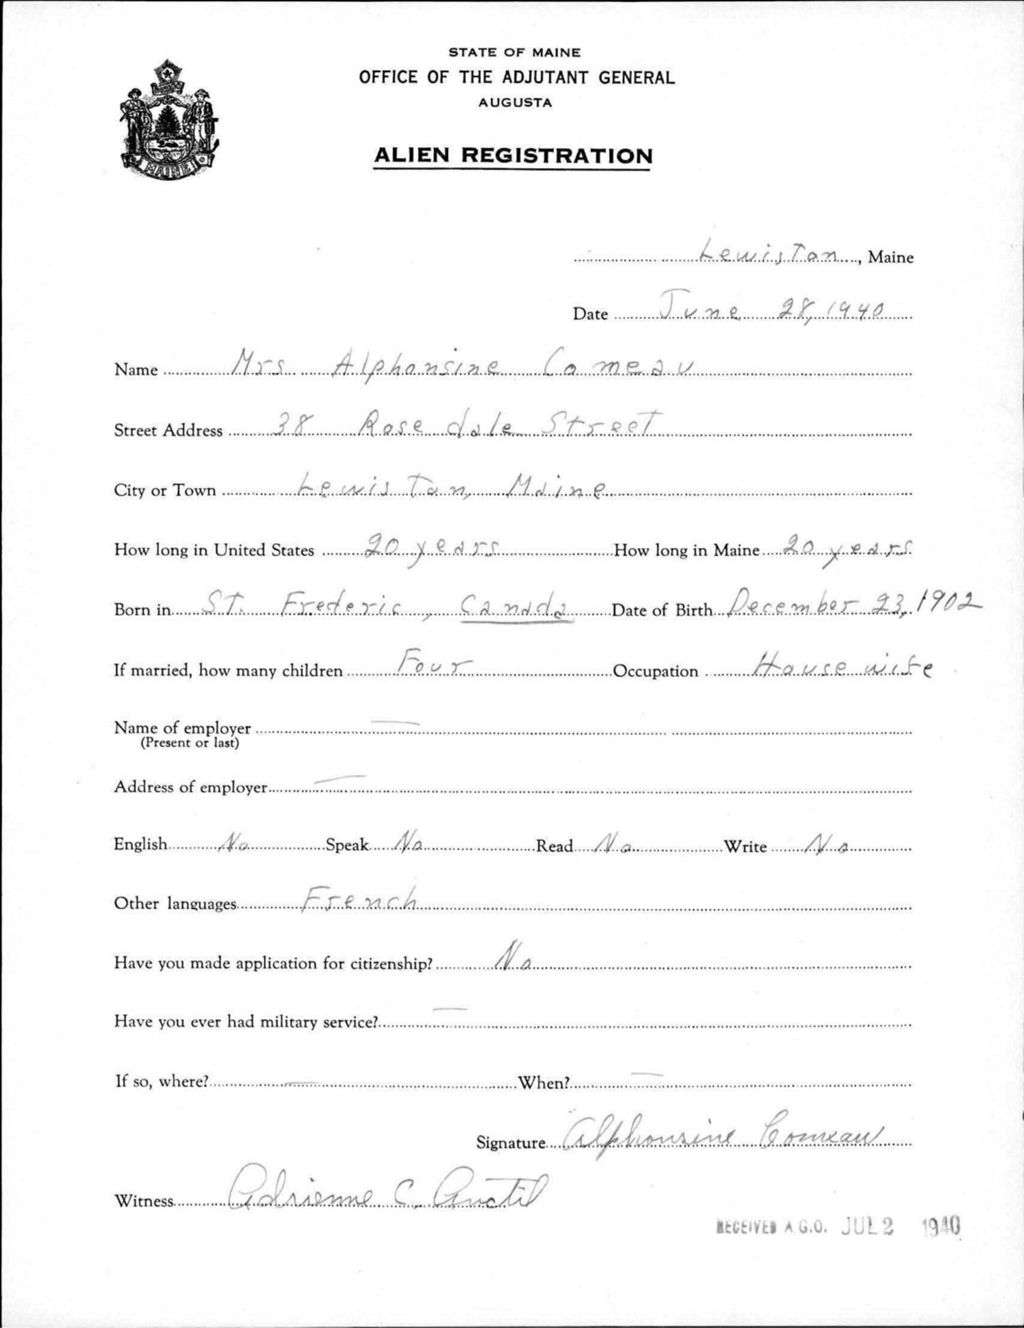 STATE OF MAINE
OFFICE OF THE ADJUTANT GENERAL
AUGUSTA
ALIEN REGISTRATION
MAINE
Lewiston, Maine
Date June 28, 1940
Name Mrs. Alphonsine Comeau
Street Address 38 Rosedale Street
City or Town Lewiston, Maine
How long in United States 20 years How long in Maine 20 years
Born in St. Frederic, Canada Date of Birth December 23, 1902
If married, how many children Four Occupation Housewife
Name of employer —
(Present or last)
Address of employer —
English No Speak No Read No Write No
Other languages French
Have you made application for citizenship? No
Have you ever had military service? —
If so, where? — When? —
Signature Alphonsine Comeau
Witness Adrienne C. Anctil
RECEIVED A.G.O. JUL 2 1940